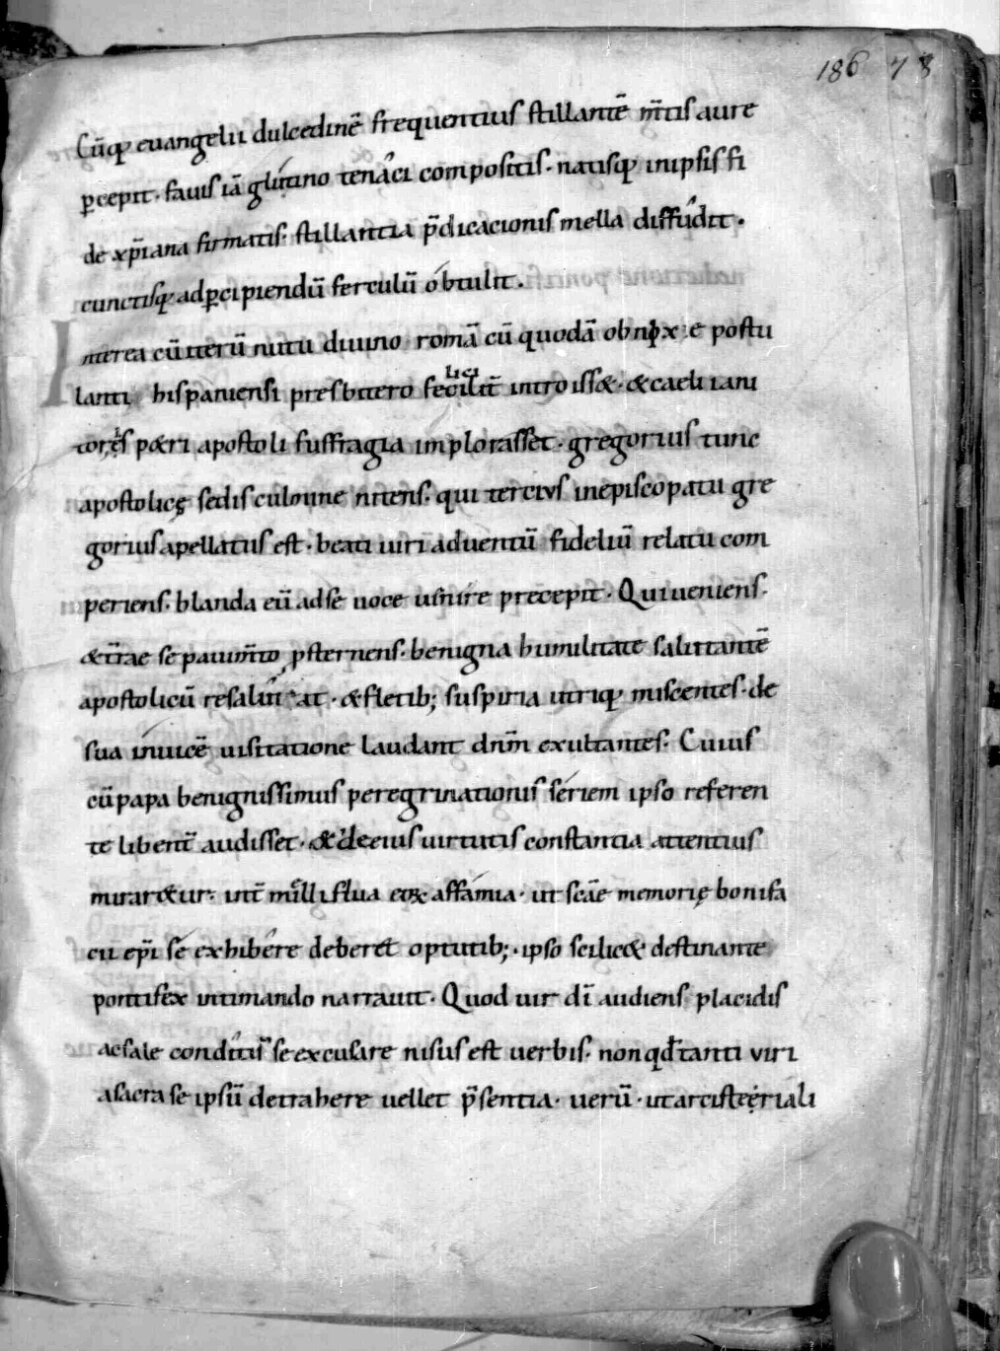 186 78
Cūq; euangelii dulcedinē frequentius stillantē m̄tis aure
ꝑcepit · fauis iā glutino tenaci compositis · natisq; inipsis fi
de xp̄iana firmatis · stillantia p̄dicacionis mella diffudit ·
cunctisq; adꝑcipiendū ferculū obtulit ·
Interea cū iterū nutu diuino romā cū quodā obnixe postu
lanti hispaniensi presbitero feliciit̄ introiss& · & caeli iani
toris p&ri apostoli suffragia implorasset · gregorius tunc
apostolicę sedis culmine nitens · qui tercius inepiscopatu gre
gorius apellatus est · beati uiri aduentū fideliū relatu com
periens · blanda eū adse uoce uenire precepit · Qui ueniens ·
& t̄rae se pauim̄to ꝓsternens · benigna humilitate salutantē
apostolicū resalutat · & fletib; suspiria utriq; miscentes · de
sua inuicē uisitatione laudant dnm̄ exultantes · Cuius
cū papa benignissimus peregrinationis seriem ipso referen
te libent̄ audisset · & de eius uirtutis constantia attentius
mirar&ur · int̄ mellislua eoꝝ affamia · ut sc̄ae memorię bonifa
cii ep̄i se exhibere deberet optutib; · ipso scilic& destinante
pontifex intimando narrauit · Quod uir dī audiens placidis
ac sale conditis se excusare nisus est uerbis · non qđ tanti viri
a sacra se ipsū detrahere uellet p̄sentia · uerū · ut arcisteriali